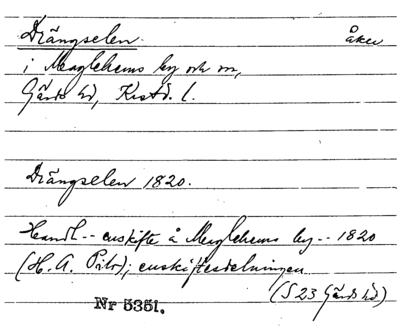 Drängselen åker
i Maglehems by och sn,
Gärds hd, Krstd. l.
Drängselen 1820.
Handl -- enskifte å Maglehems by -- 1820
(H. A. ); enskiftesdelningen
(S 23 Gärds hd)
Nr 5351.